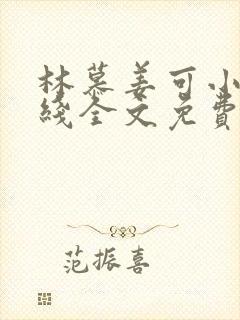 林慕姜可小
线全文免费
范振喜